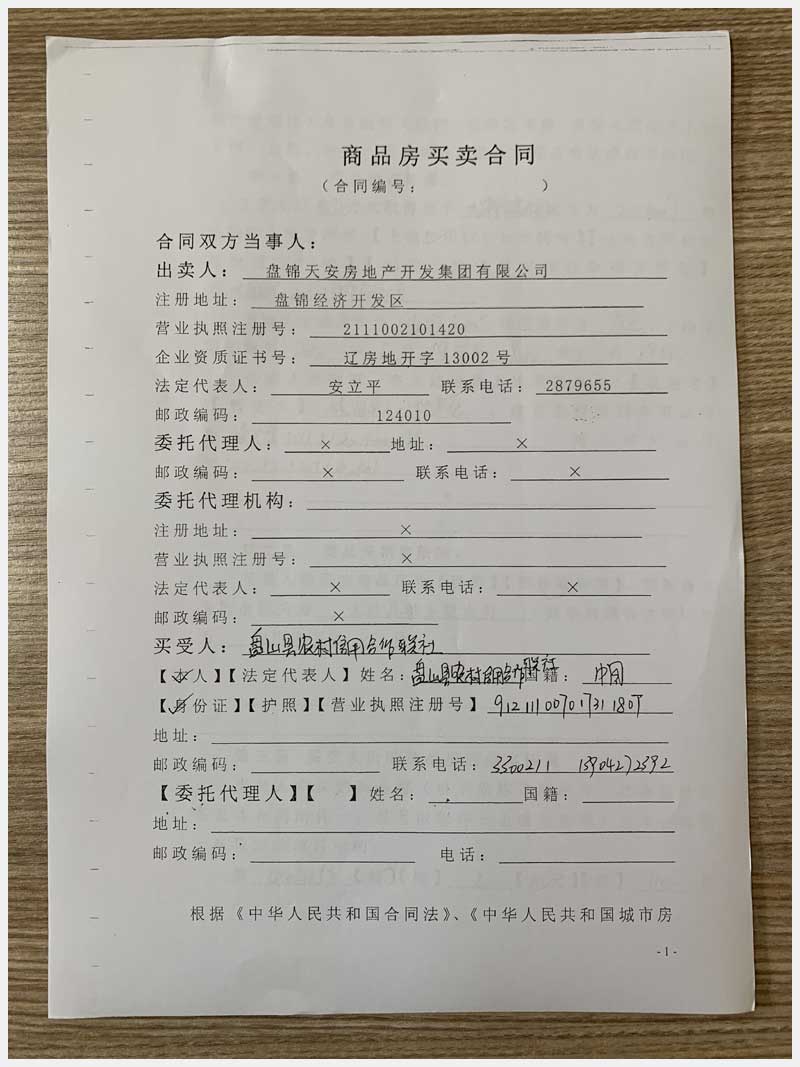 商品房买卖合同
（合同编号： ）
合同双方当事人：
出卖人： 盘锦天安房地产开发集团有限公司
注册地址： 盘锦经济开发区
营业执照注册号： 2111002101420
企业资质证书号： 辽房地开字 13002 号
法定代表人： 安立平 联系电话： 2879655
邮政编码： 124010
委托代理人： × 地址： ×
邮政编码： × 联系电话： ×
委托代理机构：
注册地址： ×
营业执照注册号： ×
法定代表人： × 联系电话： ×
邮政编码： ×
买受人： 盘山县农村信用合作联社
【本人】【法定代表人】姓名： 盘山县农村信用合作联社 国籍： 中国
【身份证】【护照】【营业执照注册号】
地址：
邮政编码： 联系电话： 3300211 13904272392
【委托代理人】【 】姓名： 国籍：
地址：
邮政编码： 电话：
根据《中华人民共和国合同法》、《中华人民共和国城市房
- 1 -